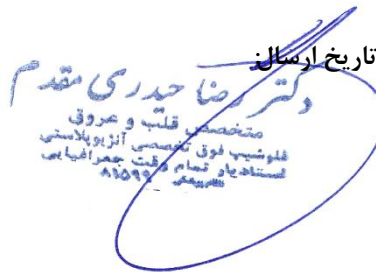 تاریخ ارسال:
دکتر رضا حیدری مقدم
متخصص قلب و عروق
فلوشیپ فوق تخصصی آنژیوپلاستی
استادیار تمام وقت جغرافیایی
۸۱۵۹۹